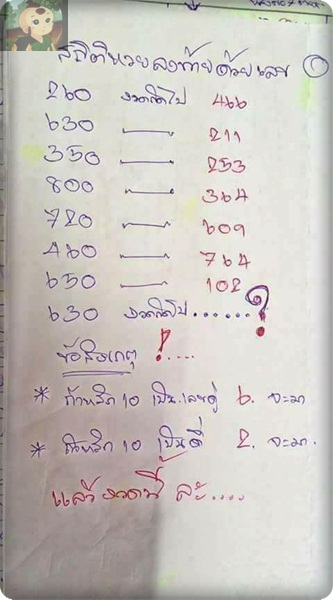 สถิติหวยลงท้ายด้วยเลข 0
260 งวดถัดไป 466
630 211
350 253
800 364
720 609
460 764
650 102
630 งวดถัดไป......?
ข้อสังเกตุ !....
* ถ้าหลัก 10 เป็นเลขคู่ 6. จะมา
* ถ้าหลัก 10 เป็นคี่ 2. จะมา.
แล้วงวดนี้ ละ....